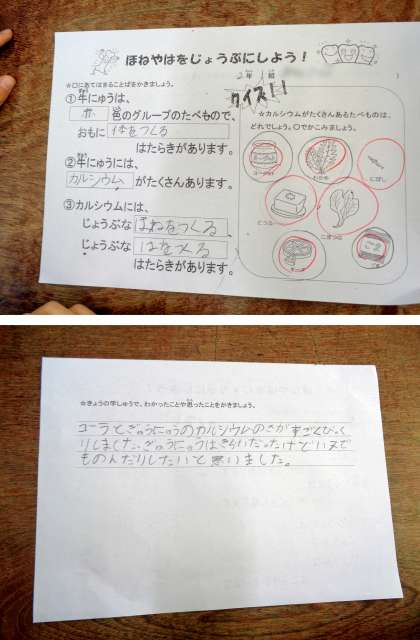 ほねやはをじょうぶにしよう！
2年 1組
☆□にあてはまることばをかきましょう。
①牛にゅうは、
赤 色のグループのたべもので、
おもに 体をつくる
はたらきがあります。
②牛にゅうには、
カルシウム がたくさんあります。
③カルシウムには、
じょうぶな ほねをつくる 、
じょうぶな はをつくる
はたらきがあります。
クイズ！！
☆カルシウムがたくさんあるたべものは、
どれでしょう。○でかこみましょう。
ヨーグルト
わかめ
にぼし
とうふ
こまつな
チーズ
ごま
☆きょうの学しゅうで、わかったことや思ったことをかきましょう。
コーラとぎゅうにゅうのカルシウムのさがすごくびっく
りしました。ぎゅうにゅうはきらいだったけどいえで
ものんだりしたいと思いました。